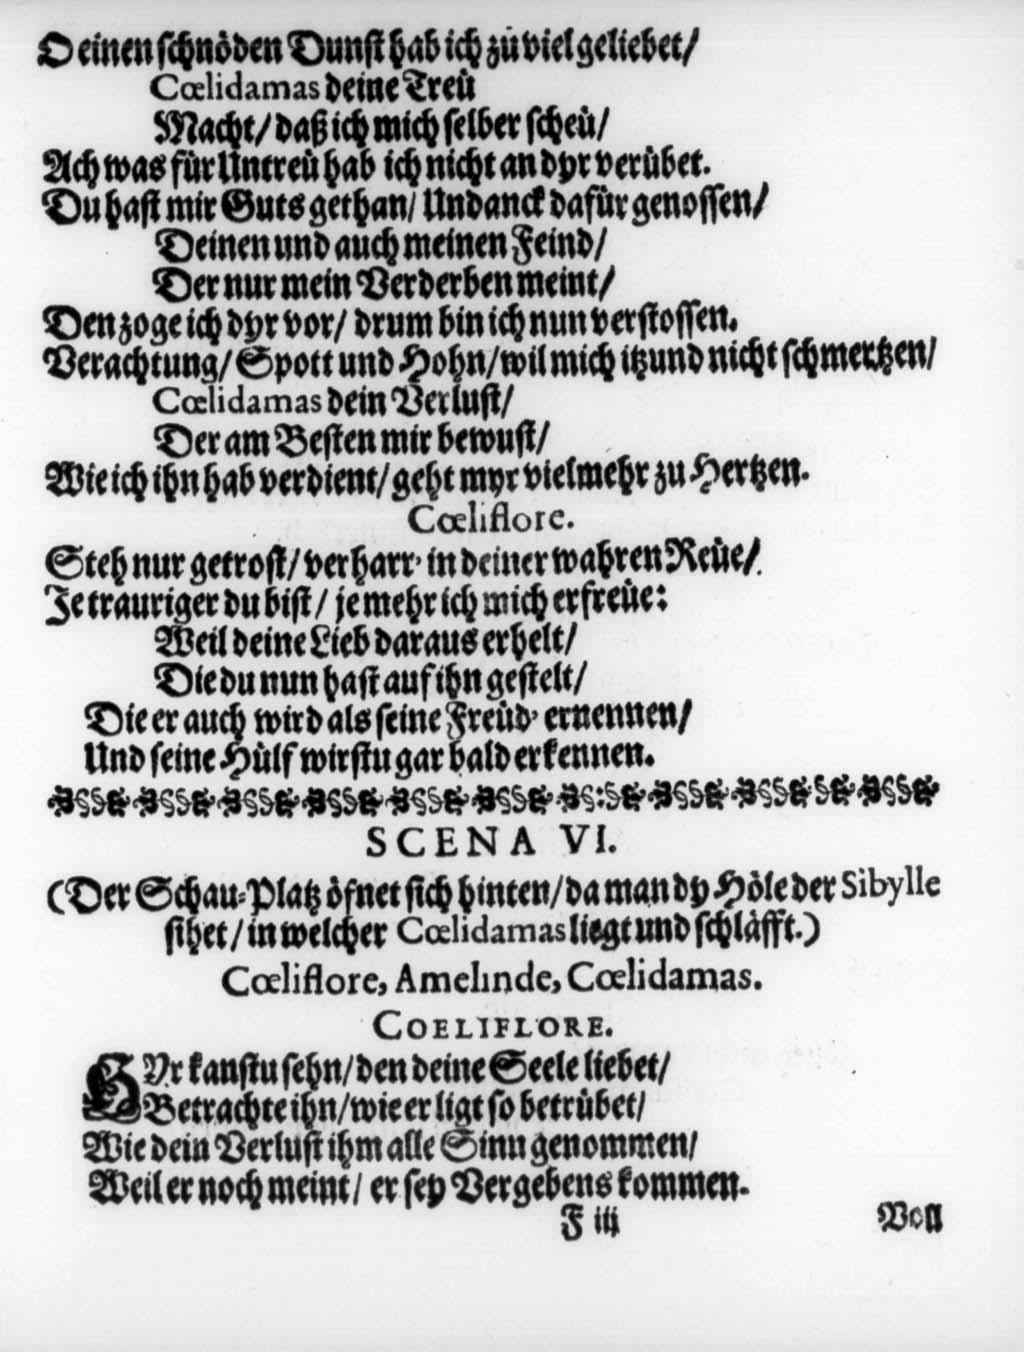 O einen schnöden Dunst hab ich zu viel geliebet/
Cœlidamas deine Treü
Macht/ daß ich mich selber scheü/
Ach was für Untreü hab ich nicht an dyr verübet.
Du hast mir Guts gethan/ Undanck dafür genossen/
Deinen und auch meinen Feind/
Der nur mein Verderben meint/
Den zoge ich dyr vor/ drum bin ich nun verstossen.
Verachtung/ Spott und Hohn/ wil mich itzund nicht schmertzen/
Cœlidamas dein Verlust/
Der am Besten mir bewust/
Wie ich ihn hab verdient/ geht myr vielmehr zu Hertzen.
Cœliflore.
Steh nur getrost/ verharr' in deiner wahren Reüe/
Je trauriger du bist/ je mehr ich mich erfreüe:
Weil deine Lieb daraus erhelt/
Die du nun hast auf ihn gestelt/
Die er auch wird als seine Freüd' ernennen/
Und seine Hülf wirstu gar bald erkennen.
SCENA VI.
(Der Schau-Platz öfnet sich hinten/ da man dy Höle der Sibylle
sihet/ in welcher Cœlidamas liegt und schläfft.)
Cœliflore, Amelinde, Cœlidamas.
COELIFLORE.
HYr kanstu sehn/ den deine Seele liebet/
Betrachte ihn/ wie er ligt so betrübet/
Wie dein Verlust ihm alle Sinn genommen/
Weil er noch meint/ er sey Vergebens kommen.
F iij Voll